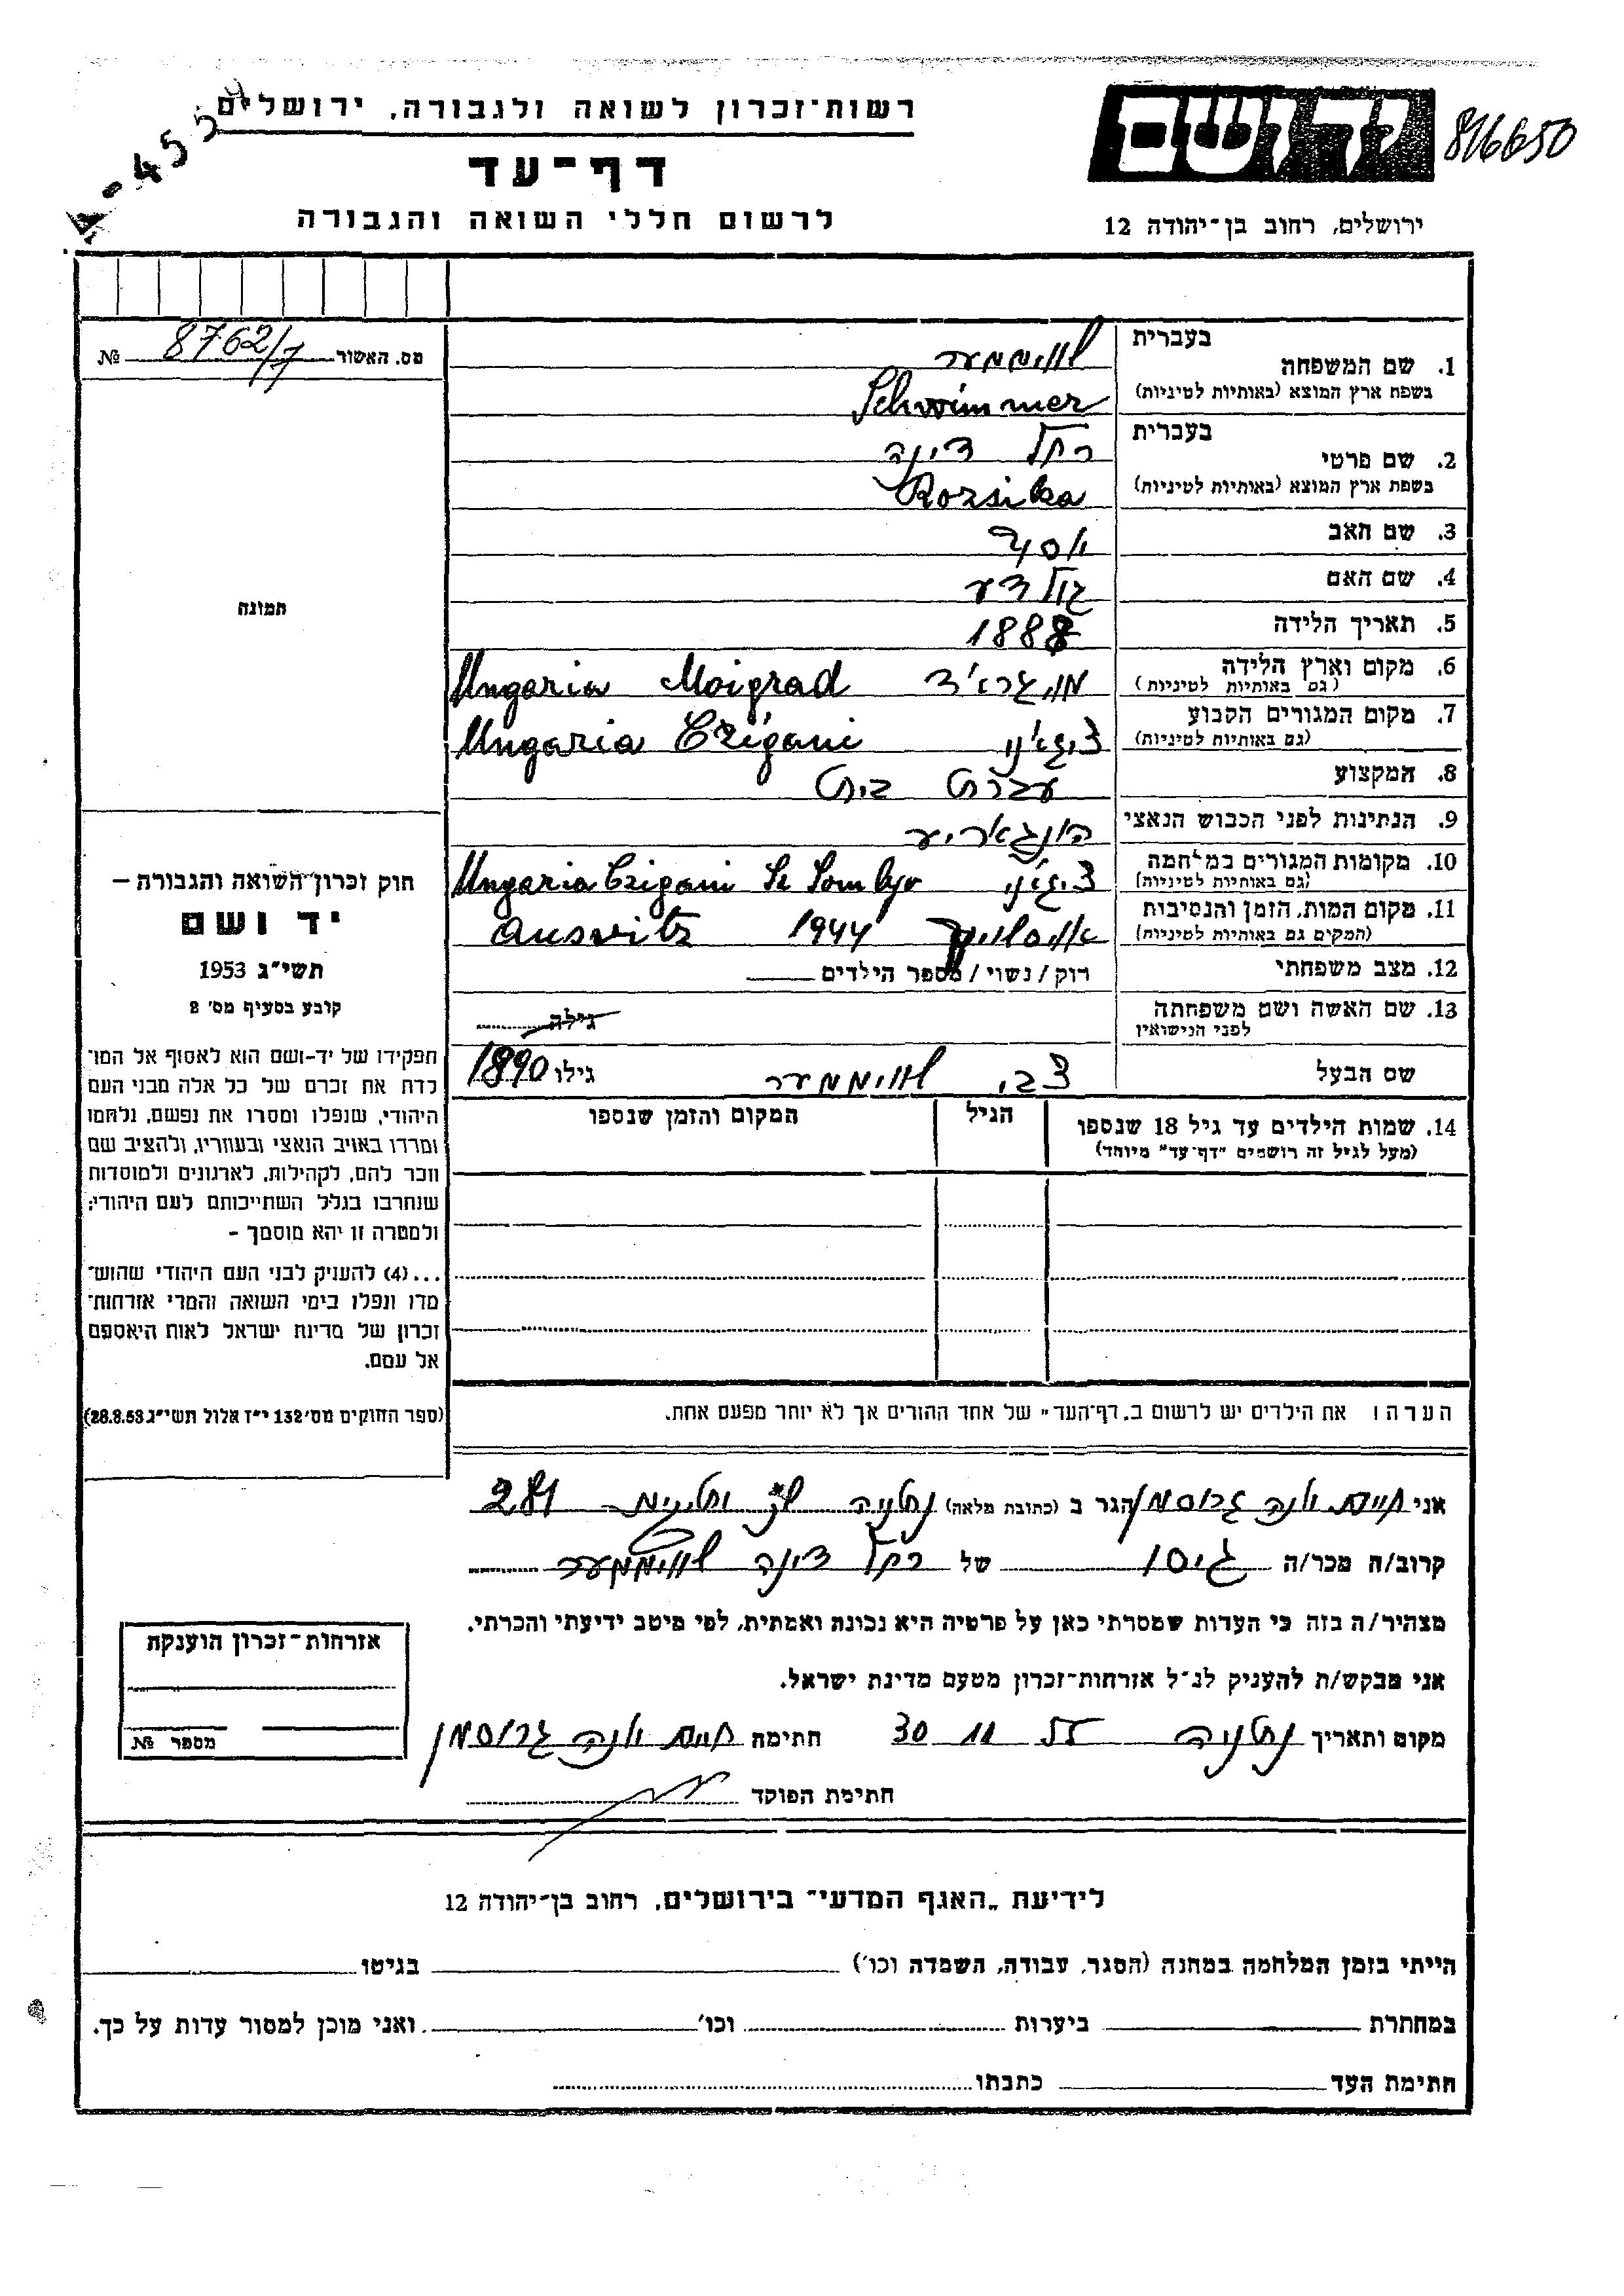 רשות־זכרון לשואה ולגבורה, ירושלים
דף־עד
לרשום חללי השואה והגבורה
ירושלים, רחוב בן־יהודה 12
816650
A-455
מס. האשור 8762/7 №
1. שם המשפחה
בעברית
שווימער
בשפת ארץ המוצא (באותיות לטיניות)
Schwimmer
2. שם פרטי
בעברית
רחל דינה
בשפת ארץ המוצא (באותיות לטיניות)
Rozsika
3. שם האב
יוסף
4. שם האם
גולדע
5. תאריך הלידה
1888
6. מקום וארץ הלידה
(גם באותיות לטיניות)
מויגראד Moigrad Ungaria
7. מקום המגורים הקבוע
(גם באותיות לטיניות)
ציגאני Czigani Ungaria
8. המקצוע
עקרת בית
9. הנתינות לפני הכבוש הנאצי
הונגאריע
10. מקומות המגורים במלחמה
(גם באותיות לטיניות)
ציגאני Ungaria Czigani
11. מקום המות, הזמן והנסיבות
(המקום גם באותיות לטיניות)
1944 Ausvitz
12. מצב משפחתי
רוק / נשוי / מספר הילדים
13. שם האשה ושם משפחתה
לפני הנישואין
גילה
שם הבעל
צבי שווימער גילו 1890
14. שמות הילדים עד גיל 18 שנספו
(מעל לגיל זה רושמים "דף־עד" מיוחד)
הגיל
המקום והזמן שנספו
הערה: את הילדים יש לרשום ב„דף־העד" של אחד ההורים אך לא יותר מפעם אחת.
תמונה
חוק זכרון השואה והגבורה –
יד ושם
תשי"ג 1953
קובע בסעיף מס' 2
תפקידו של יד-ושם הוא לאסוף אל המו־
לדת את זכרם של כל אלה מבני העם
היהודי, שנפלו ומסרו את נפשם, נלחמו
ומרדו באויב הנאצי ובעוזריו, ולהציב שם
וזכר להם, לקהילות, לארגונים ולמוסדות
שנחרבו בגלל השתייכותם לעם היהודי;
ולמטרה זו יהא מוסמך –
...(4) להעניק לבני העם היהודי שהוש־
מדו ונפלו בימי השואה והמרי אזרחות־
זכרון של מדינת ישראל לאות היאספם
אל עמם.
(ספר החוקים מס' 132 י"ז אלול תשי"ג 28.8.53)
אני חיים יונה גרוסמן הגר ב (כתובת מלאה) נתניה 281
קרוב/ה מכר/ה גיסו של רחל דינה שווימער
מצהיר/ה בזה כי העדות שמסרתי כאן על פרטיה היא נכונה ואמתית, לפי מיטב ידיעתי והכרתי.
אני מבקש/ת להעניק לנ"ל אזרחות־זכרון מטעם מדינת ישראל.
מקום ותאריך נתניה 30 חתימה חיים יונה גרוסמן
חתימת הפוקד
אזרחות־זכרון הוענקה
מספר №
לידיעת „האגף המדעי" בירושלים, רחוב בן־יהודה 12
הייתי בזמן המלחמה במחנה (הסגר, עבודה, השמדה וכו') בגיטו
במחתרת ביערות וכו' ואני מוכן למסור עדות על כך.
חתימת העד כתבתו